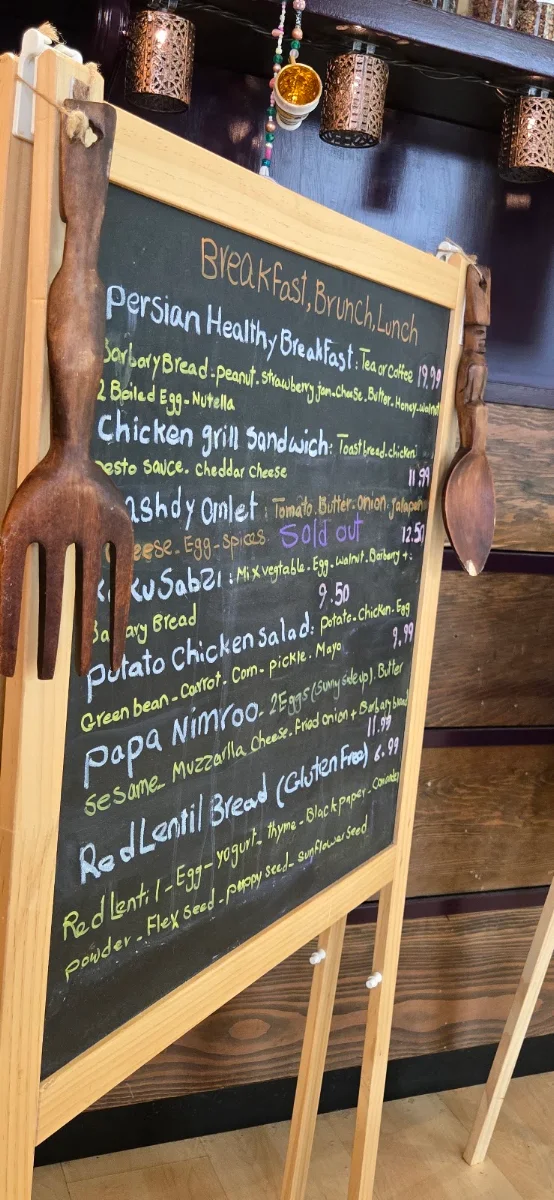 Breakfast, Brunch, Lunch
Persian Healthy Breakfast: Tea or Coffee 19.99
Barbary Bread - peanut. strawberry jam - cheese. Butter - Honey - walnut
2 Boiled Egg - Nutella
Chicken grill Sandwich: Toast bread - chicken
pesto sauce. cheddar cheese 11.99
ashdy Omlet: Tomato. Butter. onion. Jalapen
eese - Egg - spices Sold out 12.50
kuSabzi: Mix vegtable - Egg - walnut. Barbery +
Barbary Bread 9.50
Potato Chicken salad: potato - chicken - Egg
Green bean - Carrot - Corn - pickle. Mayo 9.99
Papa Nimroo - 2 Eggs (sunny side up). Butter
Sesame - Muzzarlla Cheese. Fried onion + Barbary bread 11.99
Red Lentil Bread (Gluten Free) 6.99
Red Lentil - Egg - yogurt - thyme - Black paper -
powder - Flex seed - poppy seed - sunflower seed